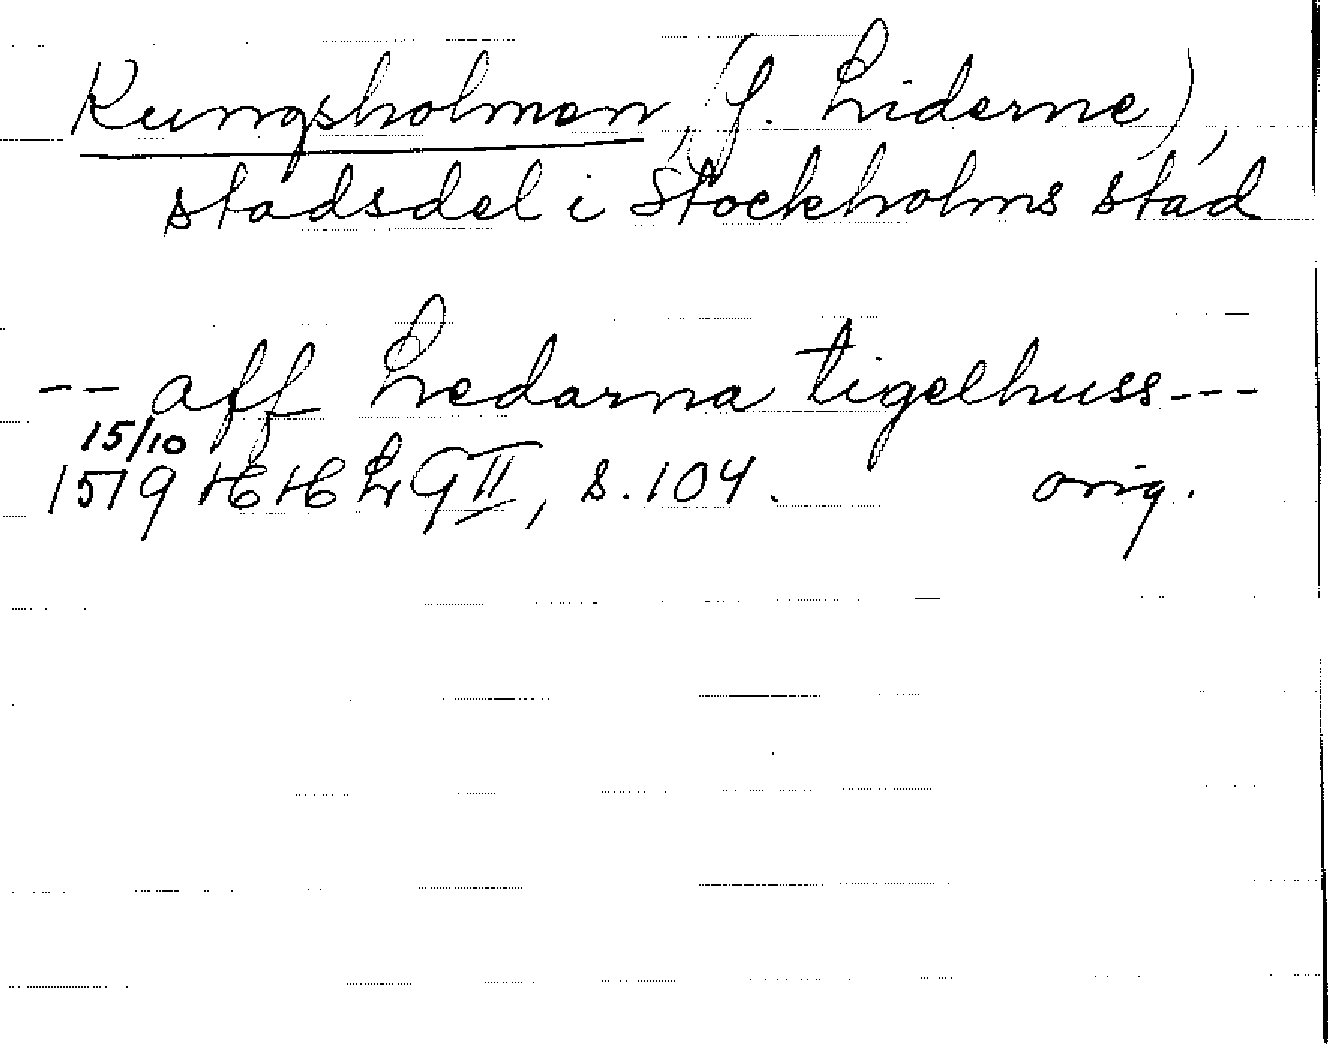 Kungsholmen, (f. Liderne),
stadsdel i Stockholms stad
-- aff Ledarna tigelhuss---
15/10
1579 HH LG II, s. 104. orig.